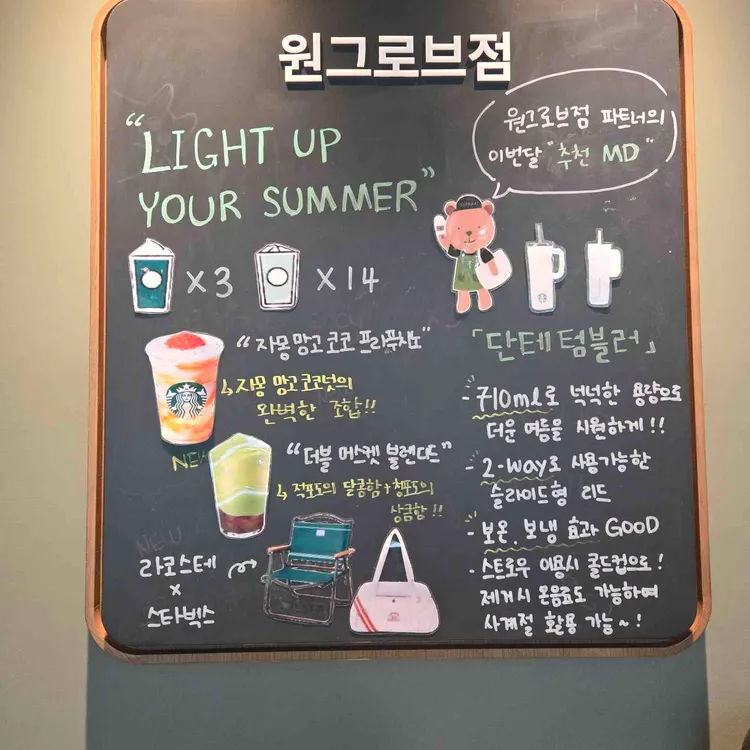 원그로브점
"LIGHT UP
YOUR SUMMER"
×3
×14
원그로브점 파트너의
이번달 "추천 MD"
"자몽 망고 코코 프라푸치노"
↳ 자몽 망고 코코넛의
완벽한 조합!!
NEW
"더블 머스켓 블렌디드"
↳ 적포도의 달콤함 + 청포도의
상큼함!!
NEW
라코스테
×
스타벅스
「단테 텀블러」
- 710ml로 넉넉한 용량으로
더운 여름을 시원하게!!
- 2-way로 사용가능한
슬라이드형 리드
- 보온, 보냉 효과 GOOD
- 스트로우 이용시 콜드컵으로!
제거시 온음료도 가능하여
사계절 활용 가능~!